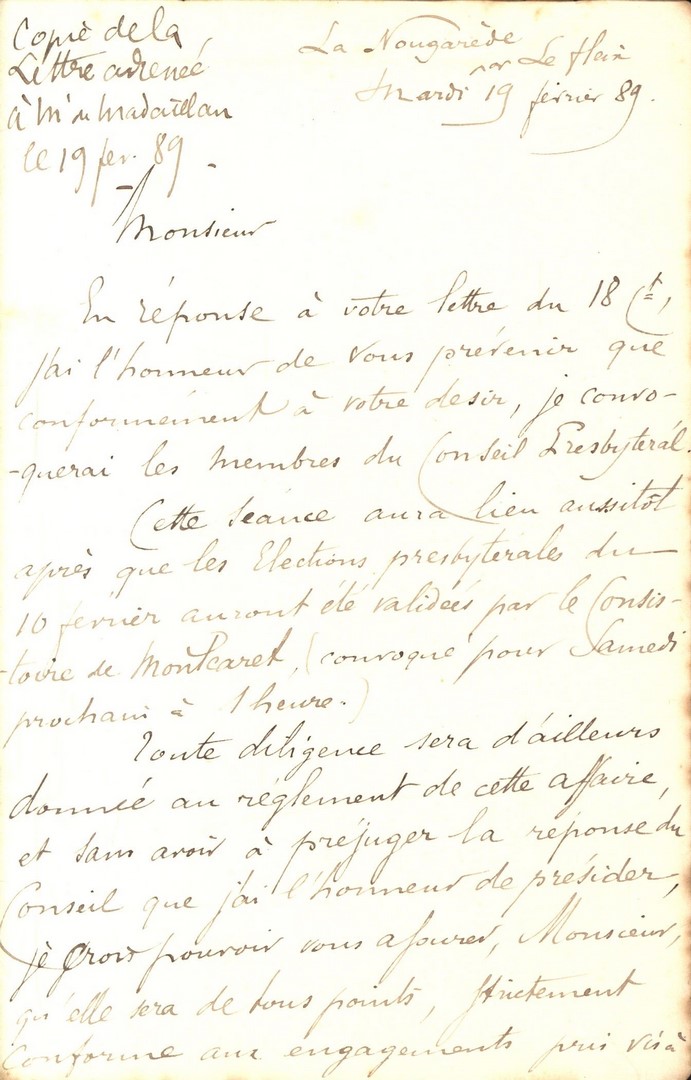 Copie de la
Lettre adressée
à Mr du Madaillan
le 19 fev. 89.
La Nougarède
par Le Fleix
Mardi 19 février 89.
Monsieur
En réponse à votre lettre du 18 Ct,
j'ai l'honneur de vous prévenir que
conformément à votre desir, je convo-
-querai les membres du Conseil Presbytéral.
Cette Séance aura lieu aussitôt
après que les Elections presbytérales du
10 fevrier auront été validées par le Consis-
-toire de Montcaret, (convoqué pour Samedi
prochain à 1 heure.)
Toute diligence sera d'ailleurs
donnée au réglement de cette affaire,
et sans avoir à préjuger la réponse du
Conseil que j'ai l'honneur de présider,
je crois pouvoir vous assurer, Monsieur,
qu'elle sera de tous points, strictement
Conforme aux engagements pris vis à